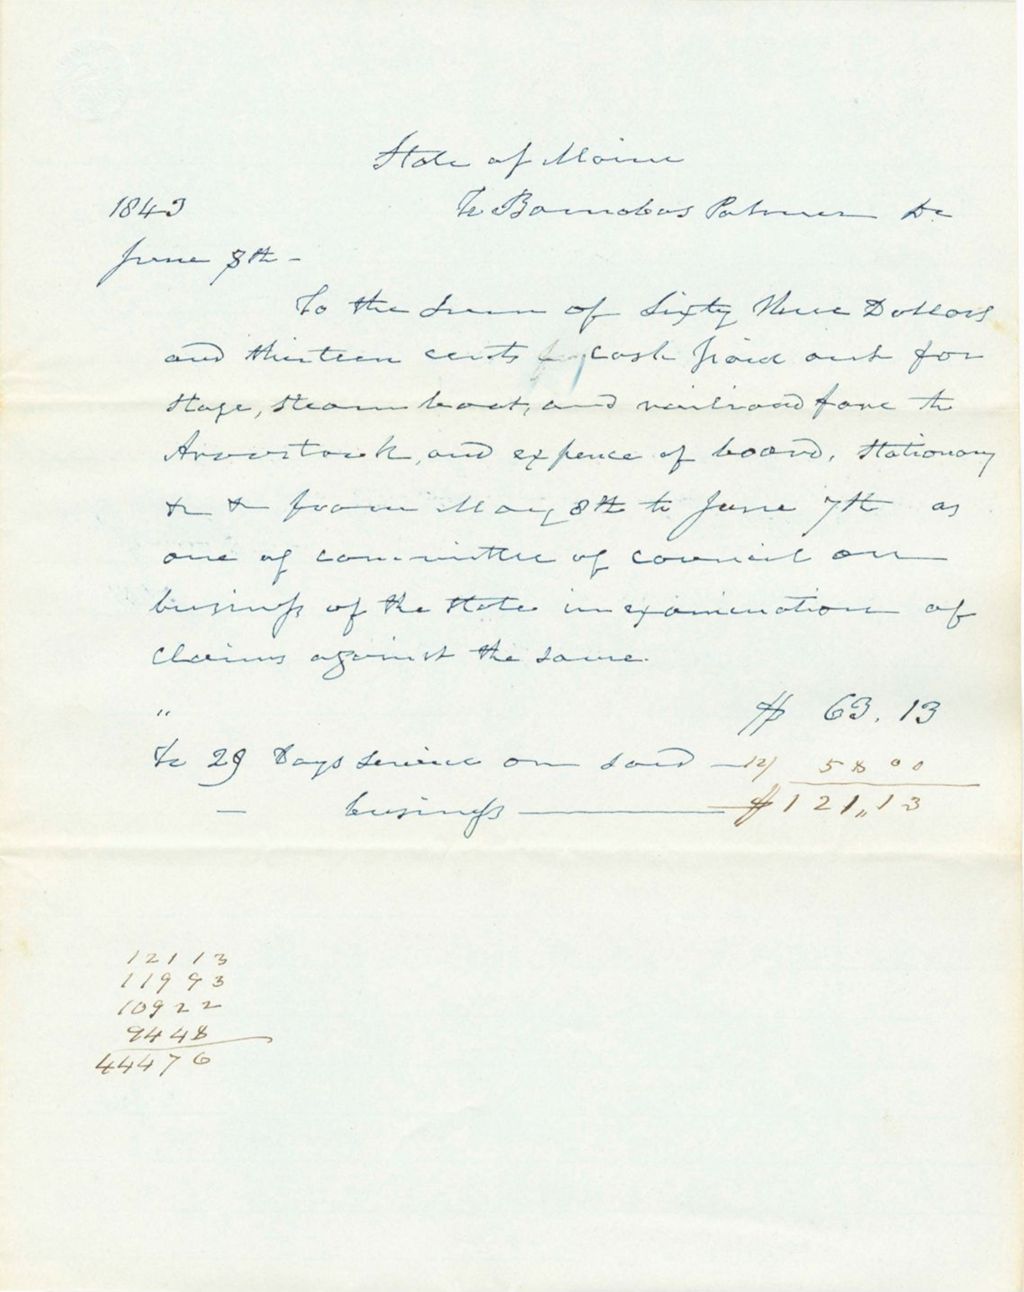 State of Maine
1843 To Barnabas Palmer Dr
June 8th -
To the sum of Sixty three Dollars
and thirteen cents cash paid out for
stage, steam boat, and railroad fare to
Aroostook, and expence of board, stationary
&c &c from May 8th to June 7th as
one of committee of council on
business of the state in examination of
claims against the same.
" $ 63.13
To 29 Days service on said — 58 00
— business — $121,,13
12113
11993
10922
9448
44476